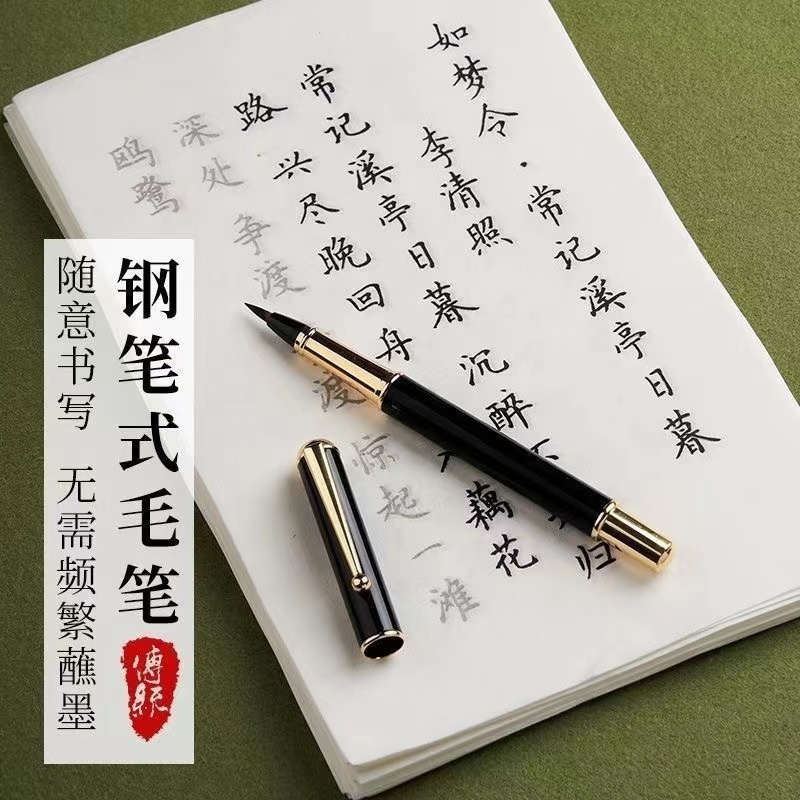 如梦令·常记溪亭日暮
李清照
常记溪亭日暮 沉醉不归
路 兴尽晚回舟 藕花
深处 争渡 渡 惊起一滩
鸥鹭
钢笔式毛笔
傳統
随意书写 无需频繁蘸墨